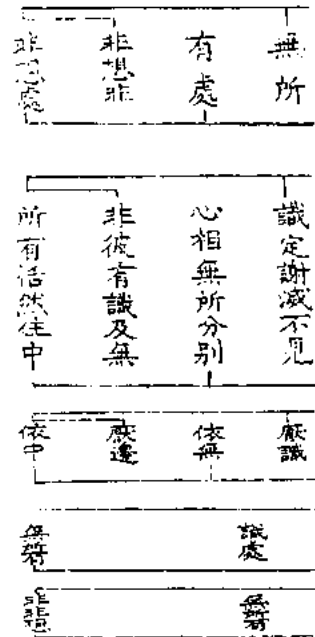 無所
有處
非想非
非想處
識定謝滅不見
心相無所分別
非彼有識及無
所有恬然住中
厭識
依無
厭邊
依中
識處
無所有
無所有
非非想